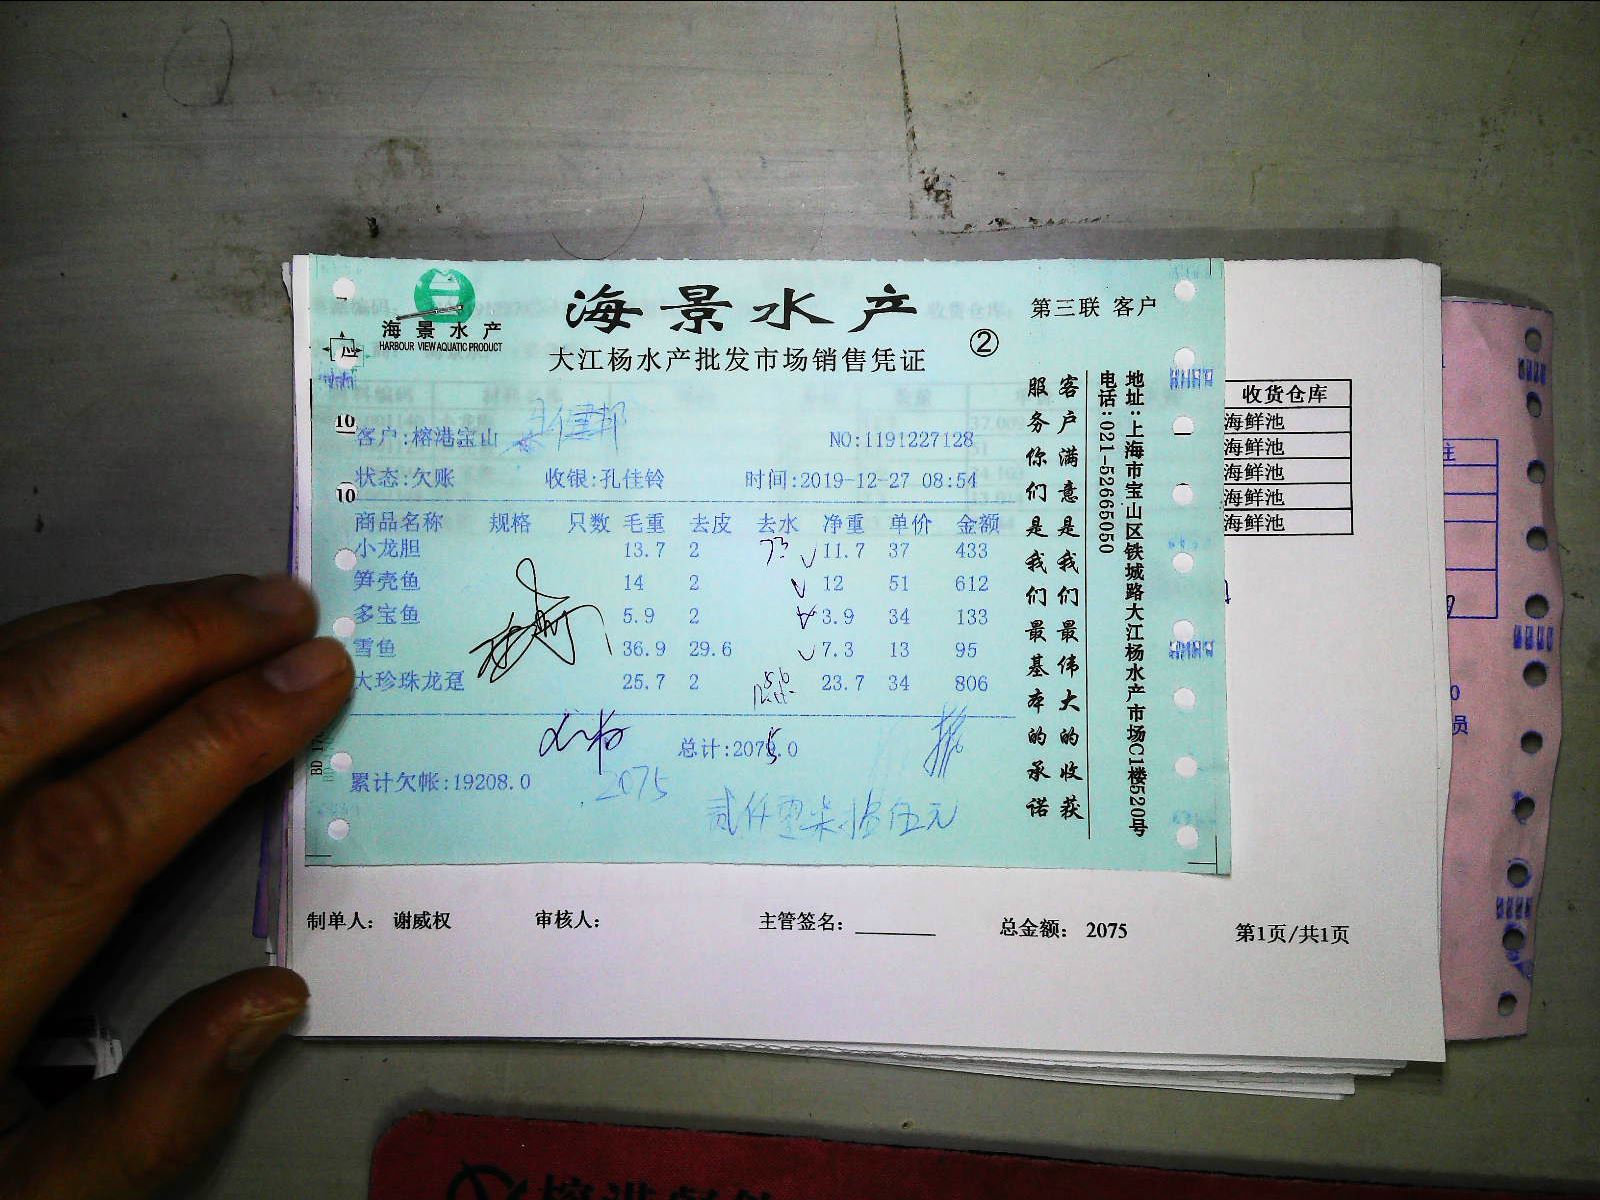 海景水产
HARBOUR VIEW AQUATIC PRODUCT
海景水产
第三联 客户
大江杨水产批发市场销售凭证 ②
客户:榕港宝山
NO:1191227128
状态:欠账 收银:孔佳铃 时间:2019-12-27 08:54
商品名称 规格 只数 毛重 去皮 去水 净重 单价 金额
小龙胆 13.7 2 11.7 37 433
笋壳鱼 14 2 12 51 612
多宝鱼 5.9 2 3.9 34 133
雪鱼 36.9 29.6 7.3 13 95
大珍珠龙趸 25.7 2 23.7 34 806
总计:2075.0
累计欠帐:19208.0
2075
贰仟零柒拾伍元
10
10
客户满意是我们最伟大的收获
服务你们是我们最基本的承诺
地址:上海市宝山区铁城路大江杨水产市场C1楼520号
电话:021-52665050
收货仓库
海鲜池
海鲜池
海鲜池
海鲜池
海鲜池
制单人: 谢威权 审核人: 主管签名: 总金额: 2075 第1页/共1页